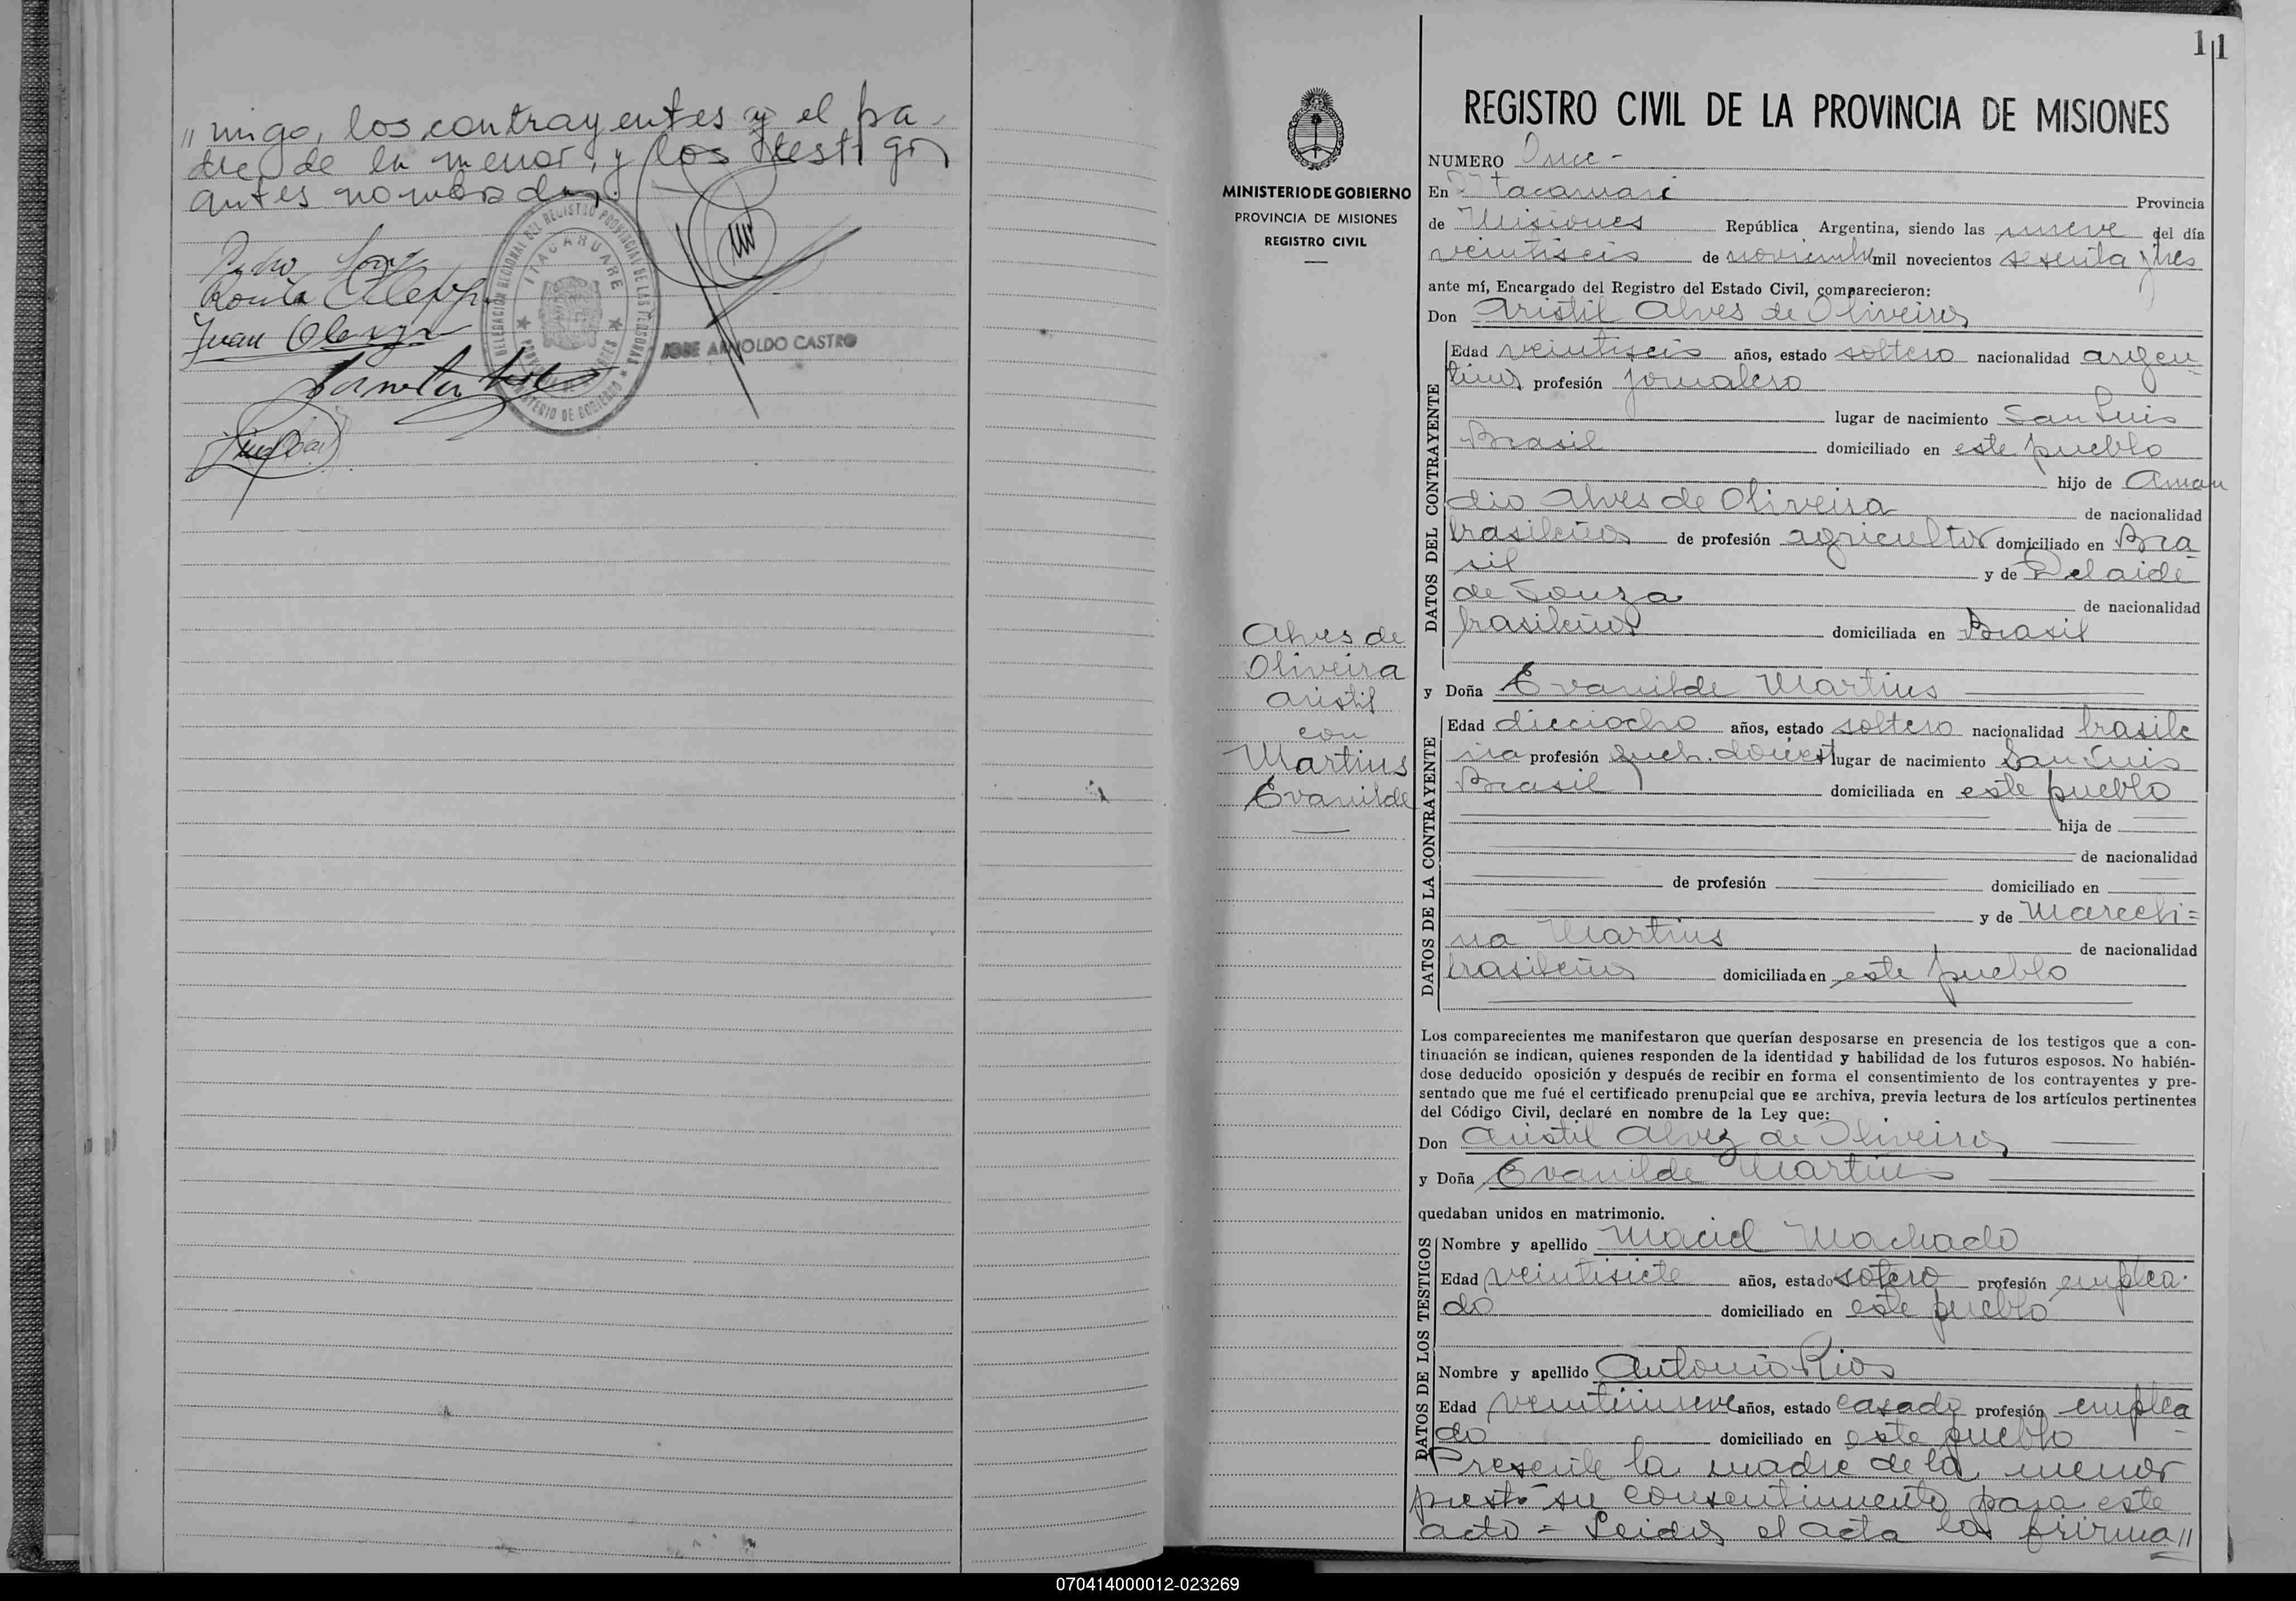 " migo, los contrayentes y el pa-
dre de la menor, y los testigos
antes nombrados.
Pedro
Juan Olenga
DELEGACION REGIONAL DEL REGISTRO PROVINCIAL DE LAS PERSONAS
ITACARUARE
MINISTERIO DE GOBIERNO
JOSE ARNOLDO CASTRO
11
MINISTERIO DE GOBIERNO
PROVINCIA DE MISIONES
REGISTRO CIVIL
Alves de
Oliveira
Aristil
con
Martins
Evanilde
REGISTRO CIVIL DE LA PROVINCIA DE MISIONES
NUMERO Once -
En Itacaruaré Provincia
de Misiones República Argentina, siendo las nueve del día
veintiseis de noviembre mil novecientos sesenta y tres
ante mí, Encargado del Registro del Estado Civil, comparecieron:
Don Aristil Alves de Oliveira
DATOS DEL CONTRAYENTE
Edad veintiseis años, estado soltero nacionalidad argen
tino profesión jornalero
lugar de nacimiento San Luis
Brasil domiciliado en este pueblo
hijo de Aman
dio Alves de Oliveira de nacionalidad
brasileño de profesión agricultor domiciliado en Bra
sil y de Delaide
de Souza de nacionalidad
brasileña domiciliada en Brasil
y Doña Evanilde Martins
DATOS DE LA CONTRAYENTE
Edad dieciocho años, estado soltera nacionalidad brasile
ña profesión queh. domest lugar de nacimiento San Luis
Brasil domiciliada en este pueblo
hija de
de nacionalidad
de profesión domiciliado en
y de Marceli=
na Martins de nacionalidad
brasileña domiciliada en este pueblo
Los comparecientes me manifestaron que querían desposarse en presencia de los testigos que a con-
tinuación se indican, quienes responden de la identidad y habilidad de los futuros esposos. No habién-
dose deducido oposición y después de recibir en forma el consentimiento de los contrayentes y pre-
sentado que me fué el certificado prenupcial que se archiva, previa lectura de los artículos pertinentes
del Código Civil, declaré en nombre de la Ley que:
Don Aristil Alvez de Oliveira
y Doña Evanilde Martins
quedaban unidos en matrimonio.
DATOS DE LOS TESTIGOS
Nombre y apellido Maciel Machado
Edad veintisiete años, estado sotero profesión emplea-
do domiciliado en este pueblo
Nombre y apellido Antonio Rios
Edad veintinueve años, estado casado profesión emplea
do domiciliado en este pueblo
Presente la madre de la menor
prestó su consentimiento para este
acto = Leida el acta la firirma "
070414000012-023269